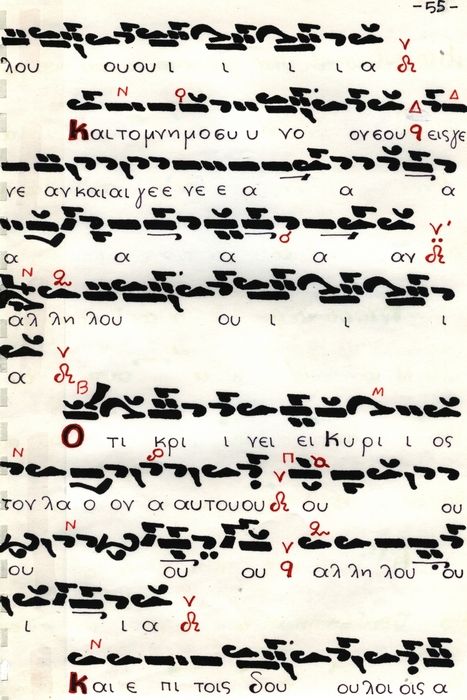 -55-
λου ου ου ι ι ι ι α
Και το μνημοσυ υ νο ον σου εις γε
νε αν και αι γε ε νε ε α α α
α α α α αν
αλ λη λου ου ι ι ι
α
Ο τι κρι ι νει ει Κυρι ι ος
τον λα ο ον α αυτουου ου ου
ου ου ου αλ λη λου ου
ι ι α
Και ε πι τοις δου ουλοι οις α